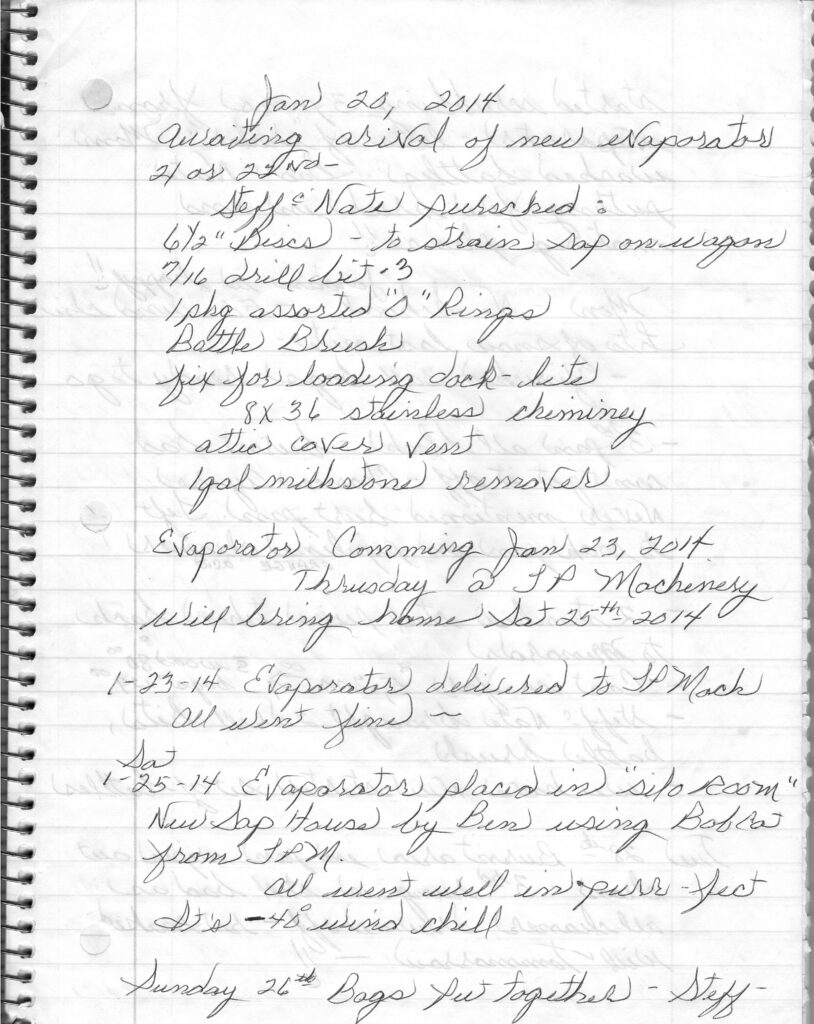 Jan 20, 2014
Awaiting arival of new evaporator
21 or 22ND-
Steff & Nate pursched :
6 1/2" Discs - to strain sap on wagon
7/16 drill bit . 3
1 pkg assorted "O" Rings
Bottle Brush
fix for loading dock - lite
8 X 36 stainless chiminey
attic cover vent
1 gal milkstone remover
Evaporator Comming Jan 23, 2014
Thrusday @ TP Machinery
Will bring home Sat 25th - 2014
1-23-14 Evaporator delivered to TP Mach
All went fine ~
Sat
1-25-14 Evaporator placed in "silo Room"
New Sap House by Ben using Bobcat
from TPM.
All went well in purr-fect
It's -40° wind chill
Sunday 26th Bags put together - Steff -